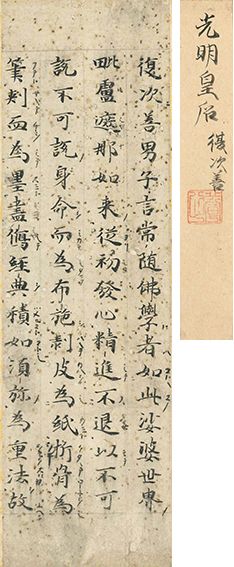 復次善男子言常随佛學者如此娑婆世界
毗盧遮那如来従初發心精進不退以不可
說不可說身命而為布施剥皮為紙析骨為
筆刺血為墨書寫經典積如須弥為重法故
光明皇后 復次善